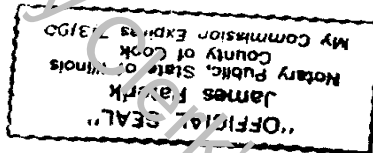 "OFFICIAL SEAL"
James
Notary Public, State of Illinois
County of Cook
My Commission Expires
Clerk